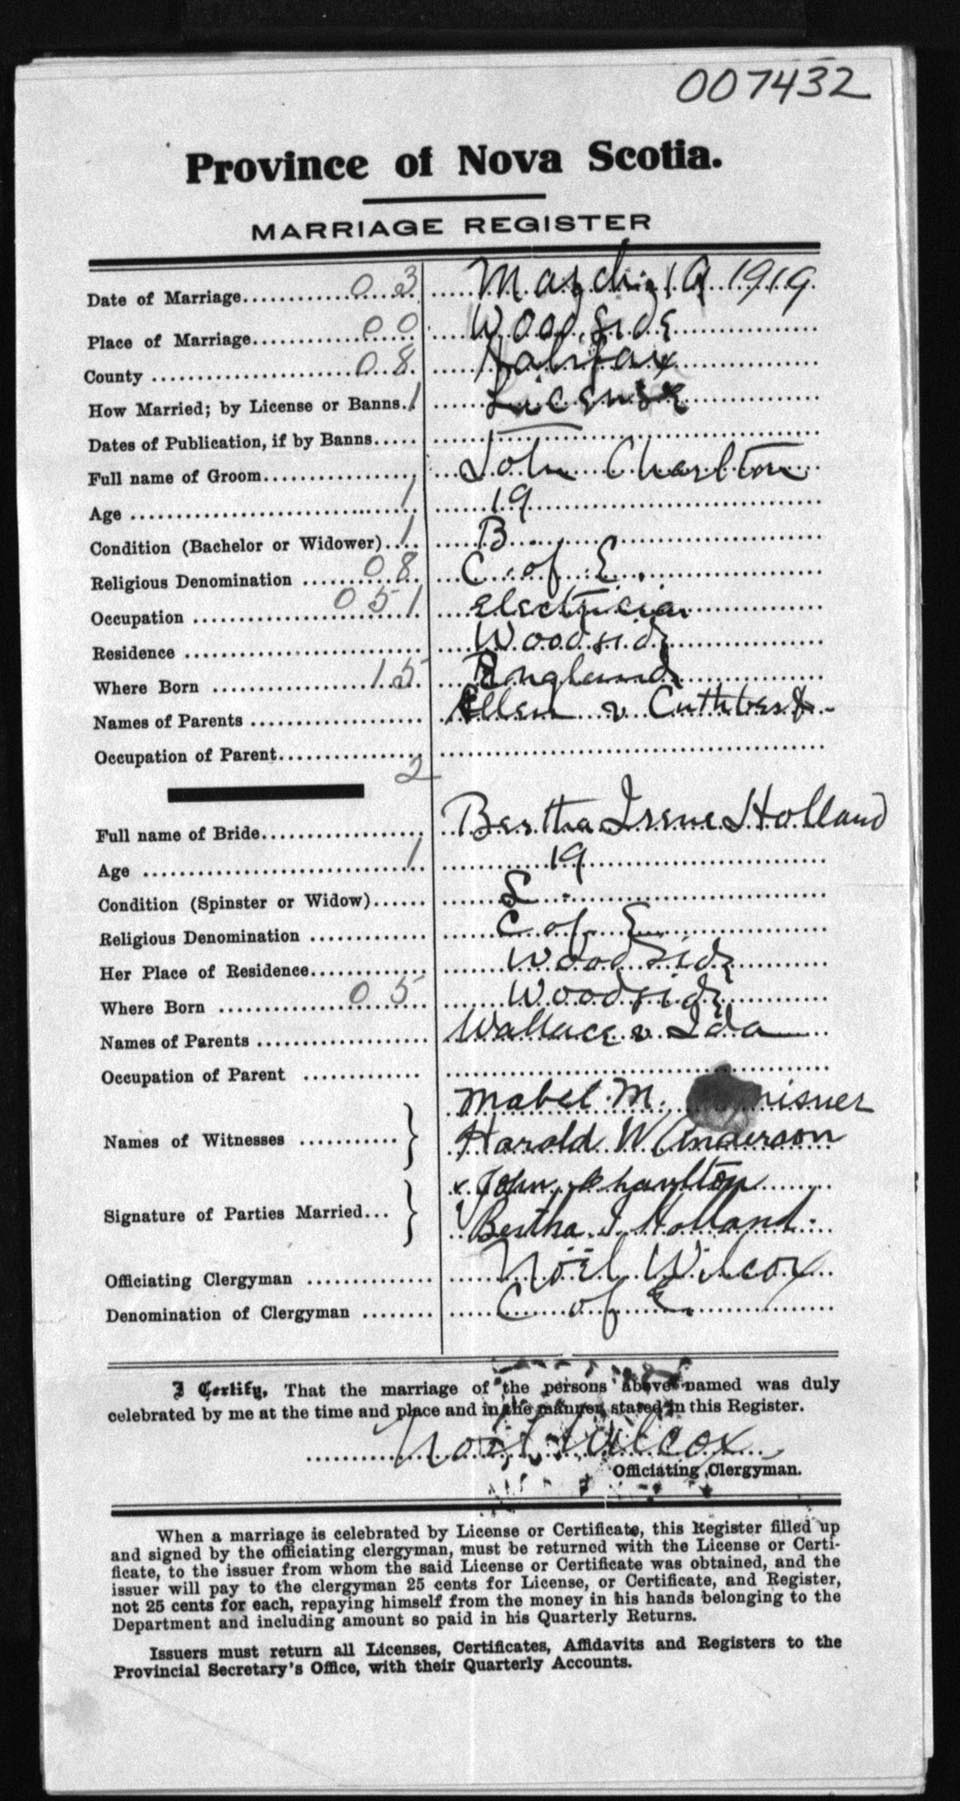 007432
Province of Nova Scotia.
MARRIAGE REGISTER
Date of Marriage 03 March 19 1919
Place of Marriage 00 Woodside
County 08 Halifax
How Married; by License or Banns 1 License
Dates of Publication, if by Banns
Full name of Groom John Charlton
Age 1 19
Condition (Bachelor or Widower) 1 B
Religious Denomination 08 C of E.
Occupation 051 electrician
Residence Woodside
Where Born 15 England
Names of Parents Ellen v Cuthbert
Occupation of Parent
2
Full name of Bride Bertha Irene Holland
Age 1 19
Condition (Spinster or Widow) S
Religious Denomination C of E
Her Place of Residence Woodside
Where Born 05 Woodside
Names of Parents Wallace v Ida
Occupation of Parent
Mabel M.
Names of Witnesses Harold W Anderson
x John Charlton
Signature of Parties Married Bertha I Holland
Officiating Clergyman Noël Wilcox
Denomination of Clergyman C of E.
I Certify, That the marriage of the persons above named was duly
celebrated by me at the time and place and in the manner stated in this Register.
Noël Wilcox
Officiating Clergyman.
When a marriage is celebrated by License or Certificate, this Register filled up
and signed by the officiating clergyman, must be returned with the License or Certi-
ficate, to the issuer from whom the said License or Certificate was obtained, and the
issuer will pay to the clergyman 25 cents for License, or Certificate, and Register,
not 25 cents for each, repaying himself from the money in his hands belonging to the
Department and including amount so paid in his Quarterly Returns.
Issuers must return all Licenses, Certificates, Affidavits and Registers to the
Provincial Secretary's Office, with their Quarterly Accounts.